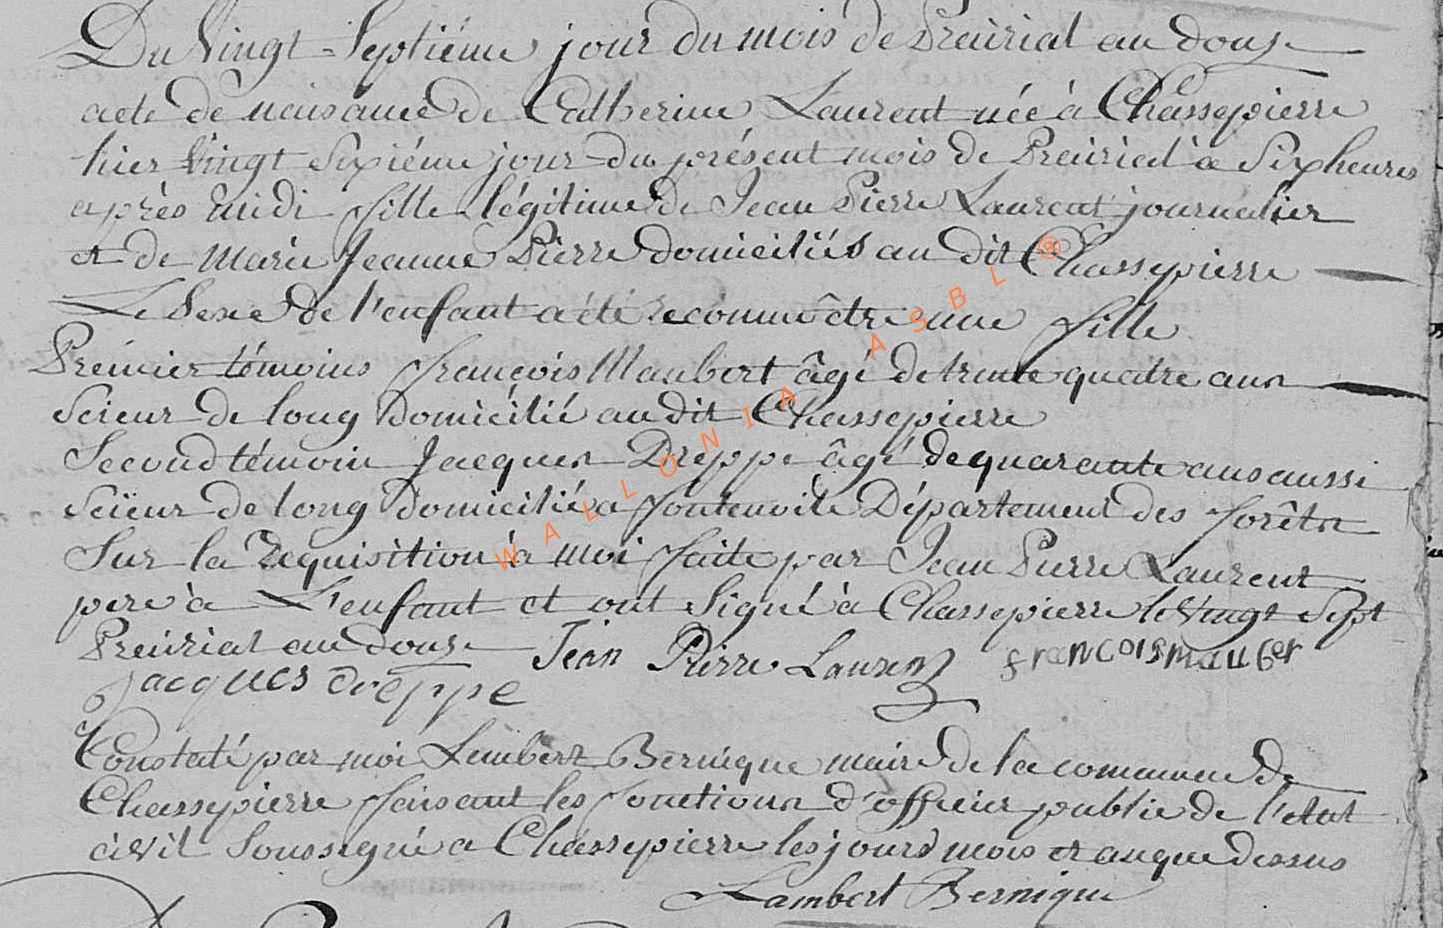 Du Vingt-Septiéme jour du mois de Preirial an douze
acte de naisance de Catherine Laurent née à Chassepierre
hier vingt Sixiéme jour du présent mois de Preirial à Six heures
après midi fille légitime de Jean Pierre Laurent journalier
et de Marie Jeanne Pierre domiciliés au dit Chassepierre
Le Sexe de l'enfant a été reconnu être une fille
Prémier témoins François Maubert âgé de trente quatre ans
Scieur de long Domicilié au dit Chassepierre
Second témoin Jacques Dreppe âgé de quarante ans aussi
Scieur de long Domicilié a fontenoile Département des forêts
Sur la requisition à moi faite par Jean Pierre Laurent
pere à L'enfant et ont Signé à Chassepierre le Vingt Sept
Preirial an douze Jean Pierre Laurent francois mauber
Jacques dreppe
Constaté par moi Lambert Bernique maire de la commune de
Chassepierre faisant les fonctions d'officier public de l'etat
civil Soussigné a Chassepierre les jours mois et an que dessus
Lambert Bernique
WALLONIA ASBL ®